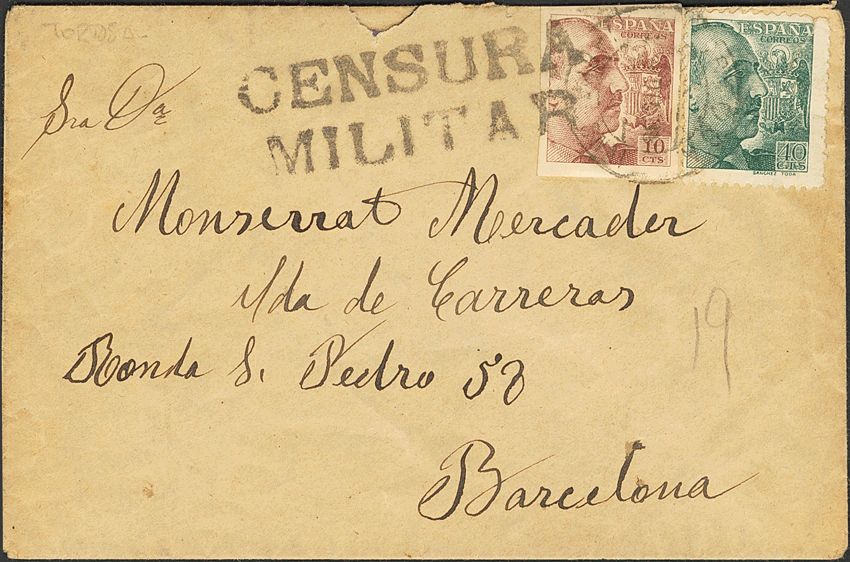 TORDSA
CENSURA
MILITAR
ESPAÑA
CORREOS
10
CTS
ESPAÑA
CORREOS
40
CTS
SANCHEZ TODA
Sra Dª
Monserrat Mercader
Vda de Carreras
Ronda S. Pedro 58
Barcelona
19